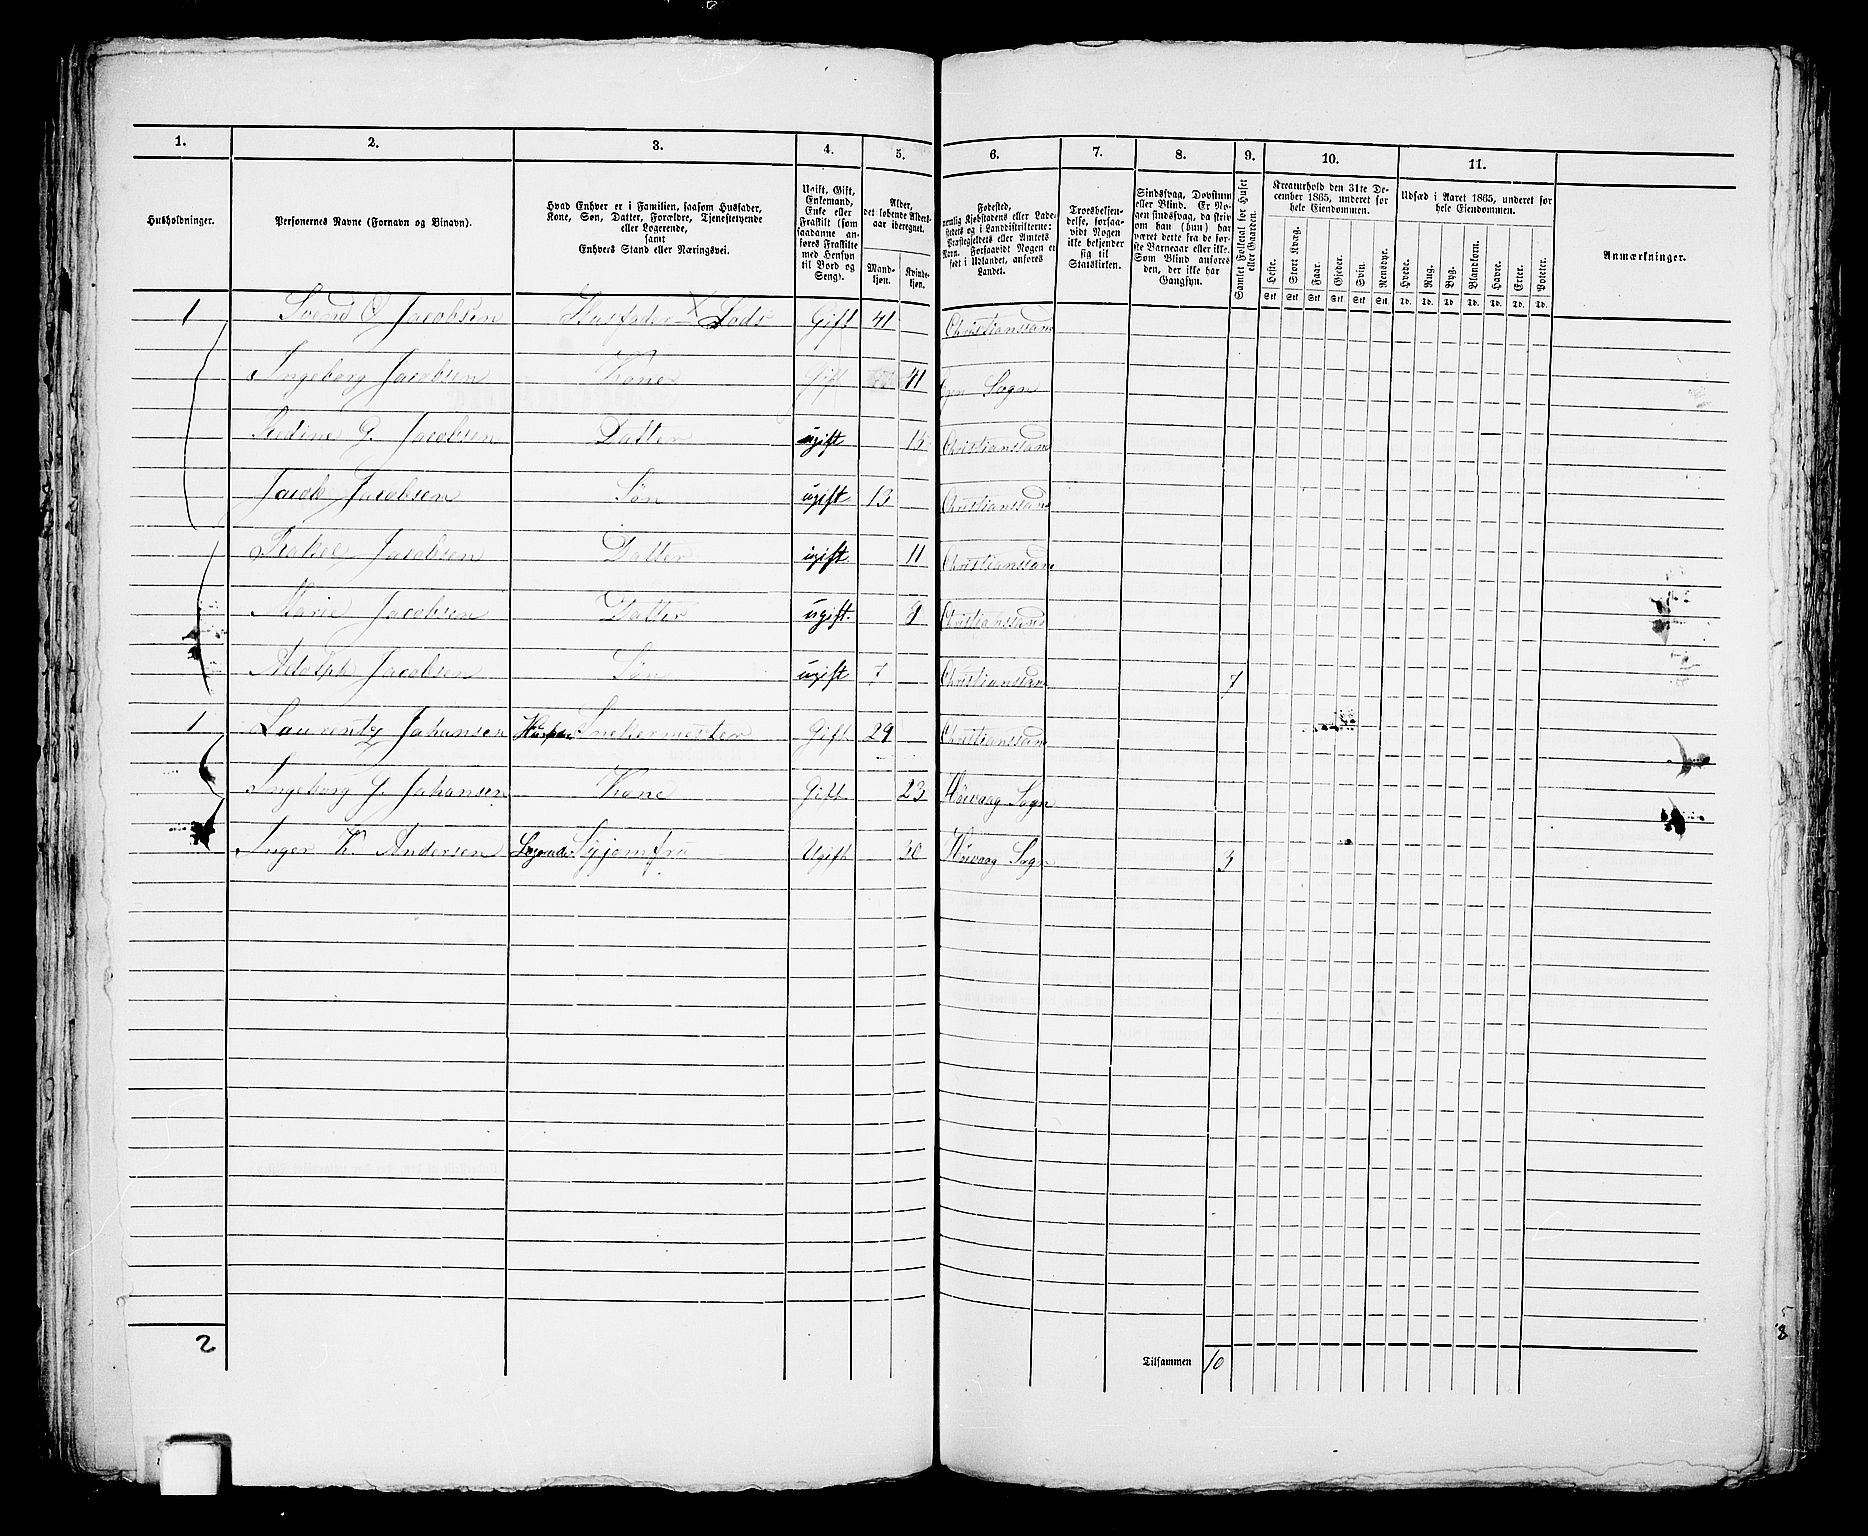 1. 2. 3. 4. 5. 6. 7. 8. 9. 10. 11.
Husholdninger. Personernes Navne (Fornavn og Binavn).
Hvad Enhver er i Familien, saasom Husfader,
Kone, Søn, Datter, Forældre, Tjenestetyende
eller Logerende,
samt
Enhvers Stand eller Næringsvei.
Ugift, Gift,
Enkemand,
Enke eller
Fraskilt (som
saadanne an-
føres Fraskilte
med Hensyn
til Bord og
Seng).
Alder,
det løbende Alders-
aar iberegnet.
Mand-
kjøn.
Kvinde-
kjøn.
Fødested,
nemlig Kjøbstadens eller Lade-
stedets og i Landdistrikterne:
Præstegjeldets eller Amtets
Navn. Forsaavidt Nogen er
født i Udlandet, anføres
Landet.
Troesbekjen-
delse, forsaa-
vidt Nogen
ikke bekjender
sig til
Statskirken.
Sindssvag, Døvstum
eller Blind. Er No-
gen sindssvag, da skriv
om han (hun) har
været dette fra de før-
ste Barneaar eller ikke.
Som Blind anføres
den, der ikke har
Gangsyn.
Samlet Folketal for Huset
eller Gaarden.
Kreaturhold den 31te De-
cember 1865, underet for
hele Eiendommen.
Heste. Stort Kvæg. Faar. Gjeder. Svin. Rensdyr.
Stk. Stk. Stk. Stk. Stk. Stk.
Udsæd i Aaret 1865, underet for
hele Eiendommen.
Hvede. Rug. Byg. Blandkorn. Havre. Erter. Poteter.
Td. Td. Td. Td. Td. Td. Td.
Anmærkninger.
1 Svend O Jacobsen Husfader X Lods Gift 41 Christianssand
Ingeborg Jacobsen Kone Gift 41 Sogn
G. Jacobsen Datter ugift 15 Christianssand
Jacob Jacobsen Søn ugift 13 Christianssand
Jacobsen Datter ugift 11 Christianssand
Marie Jacobsen Datter ugift. 9 Christianssand
Adolph Jacobsen Søn ugift 7 Christianssand 7
1 Laurentz Johansen Husfader Snekermester Gift 29 Christianssand
Ingeborg J. Johansen Kone Gift 23 Høivaag Sogn
Inger K. Andersen Logerende Syjomfru Ugift 30 Høivaag Sogn 3
2 Tilsammen 10